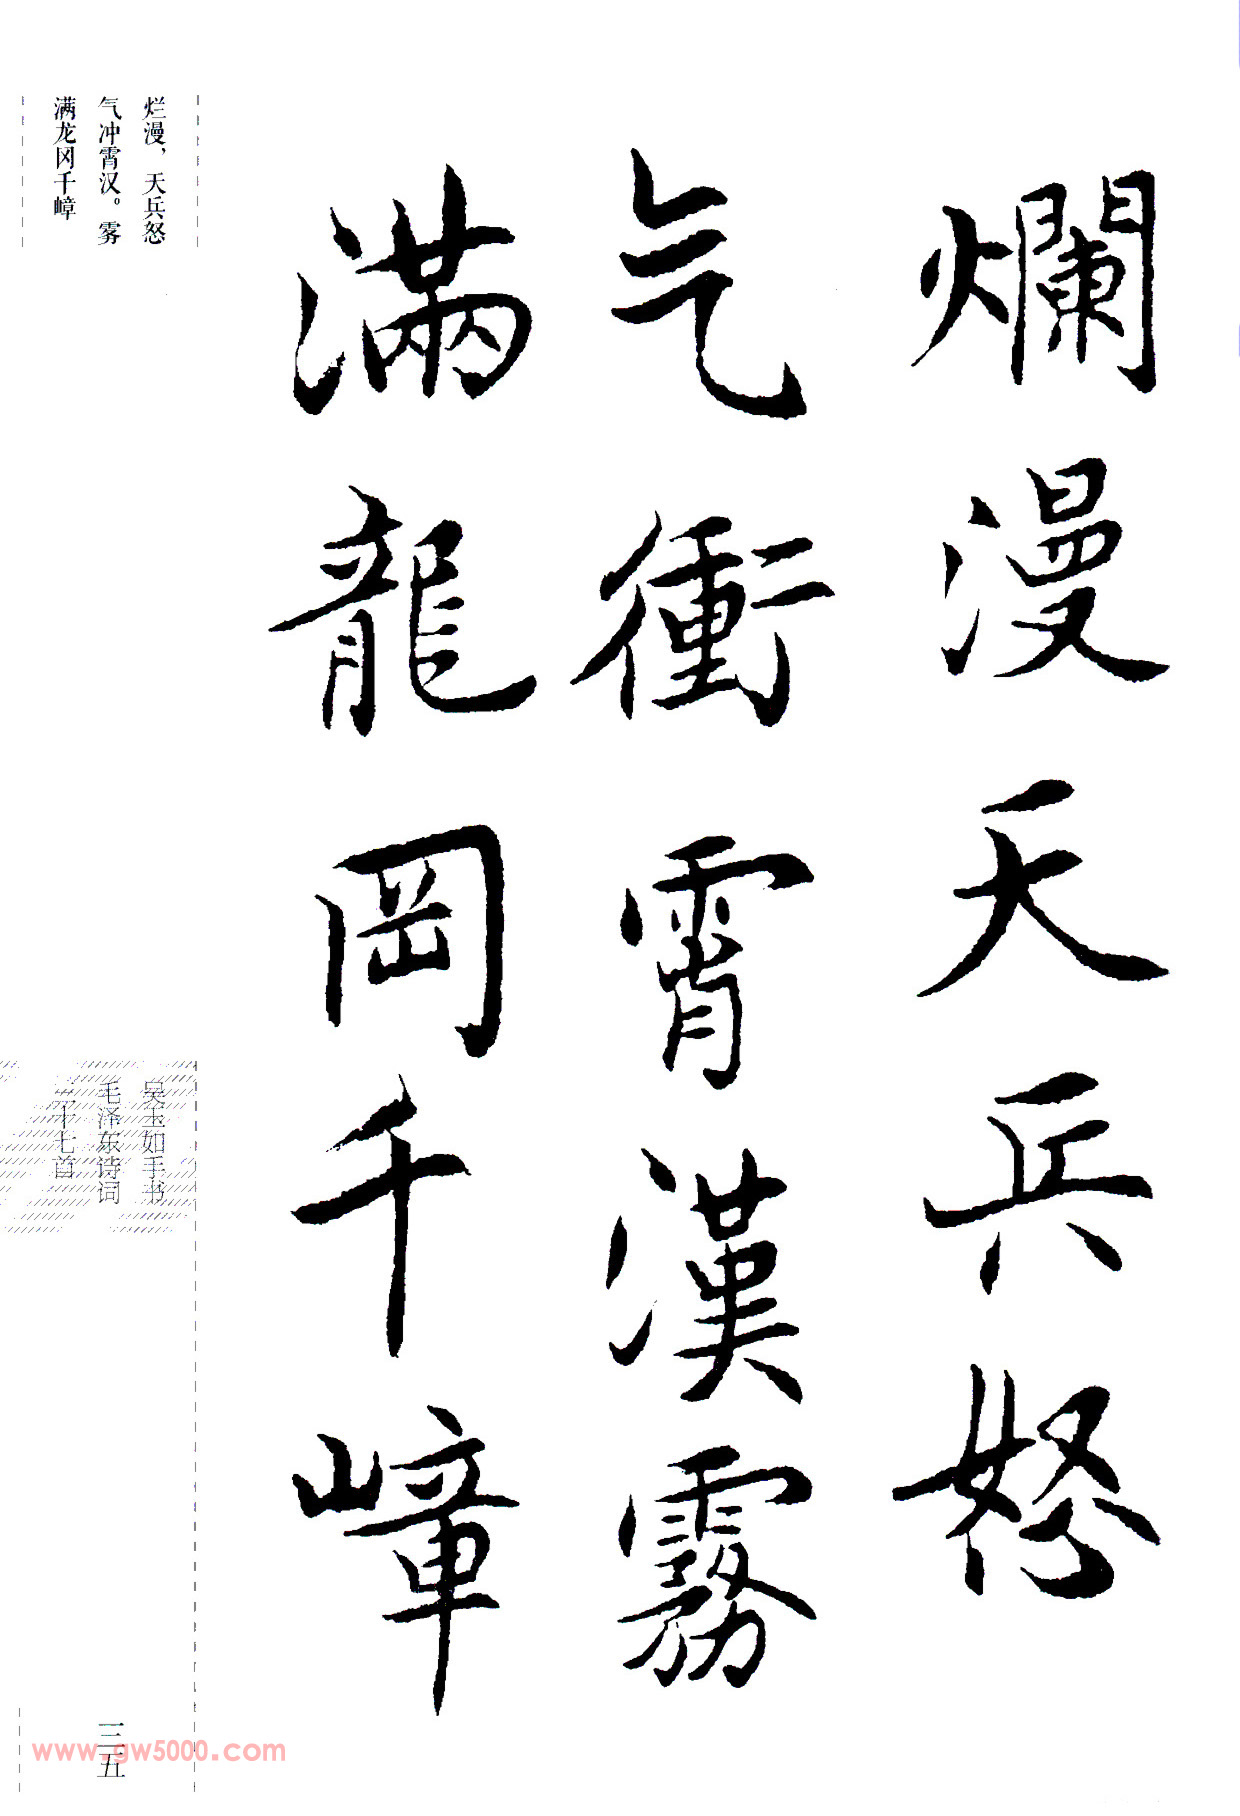 爛漫天兵怒
气衝霄漢霧
滿龍岡千嶂
烂漫，天兵怒
气冲霄汉。雾
满龙冈千嶂
吴玉如手书
毛泽东诗词
二十七首
三五
www.gw5000.com